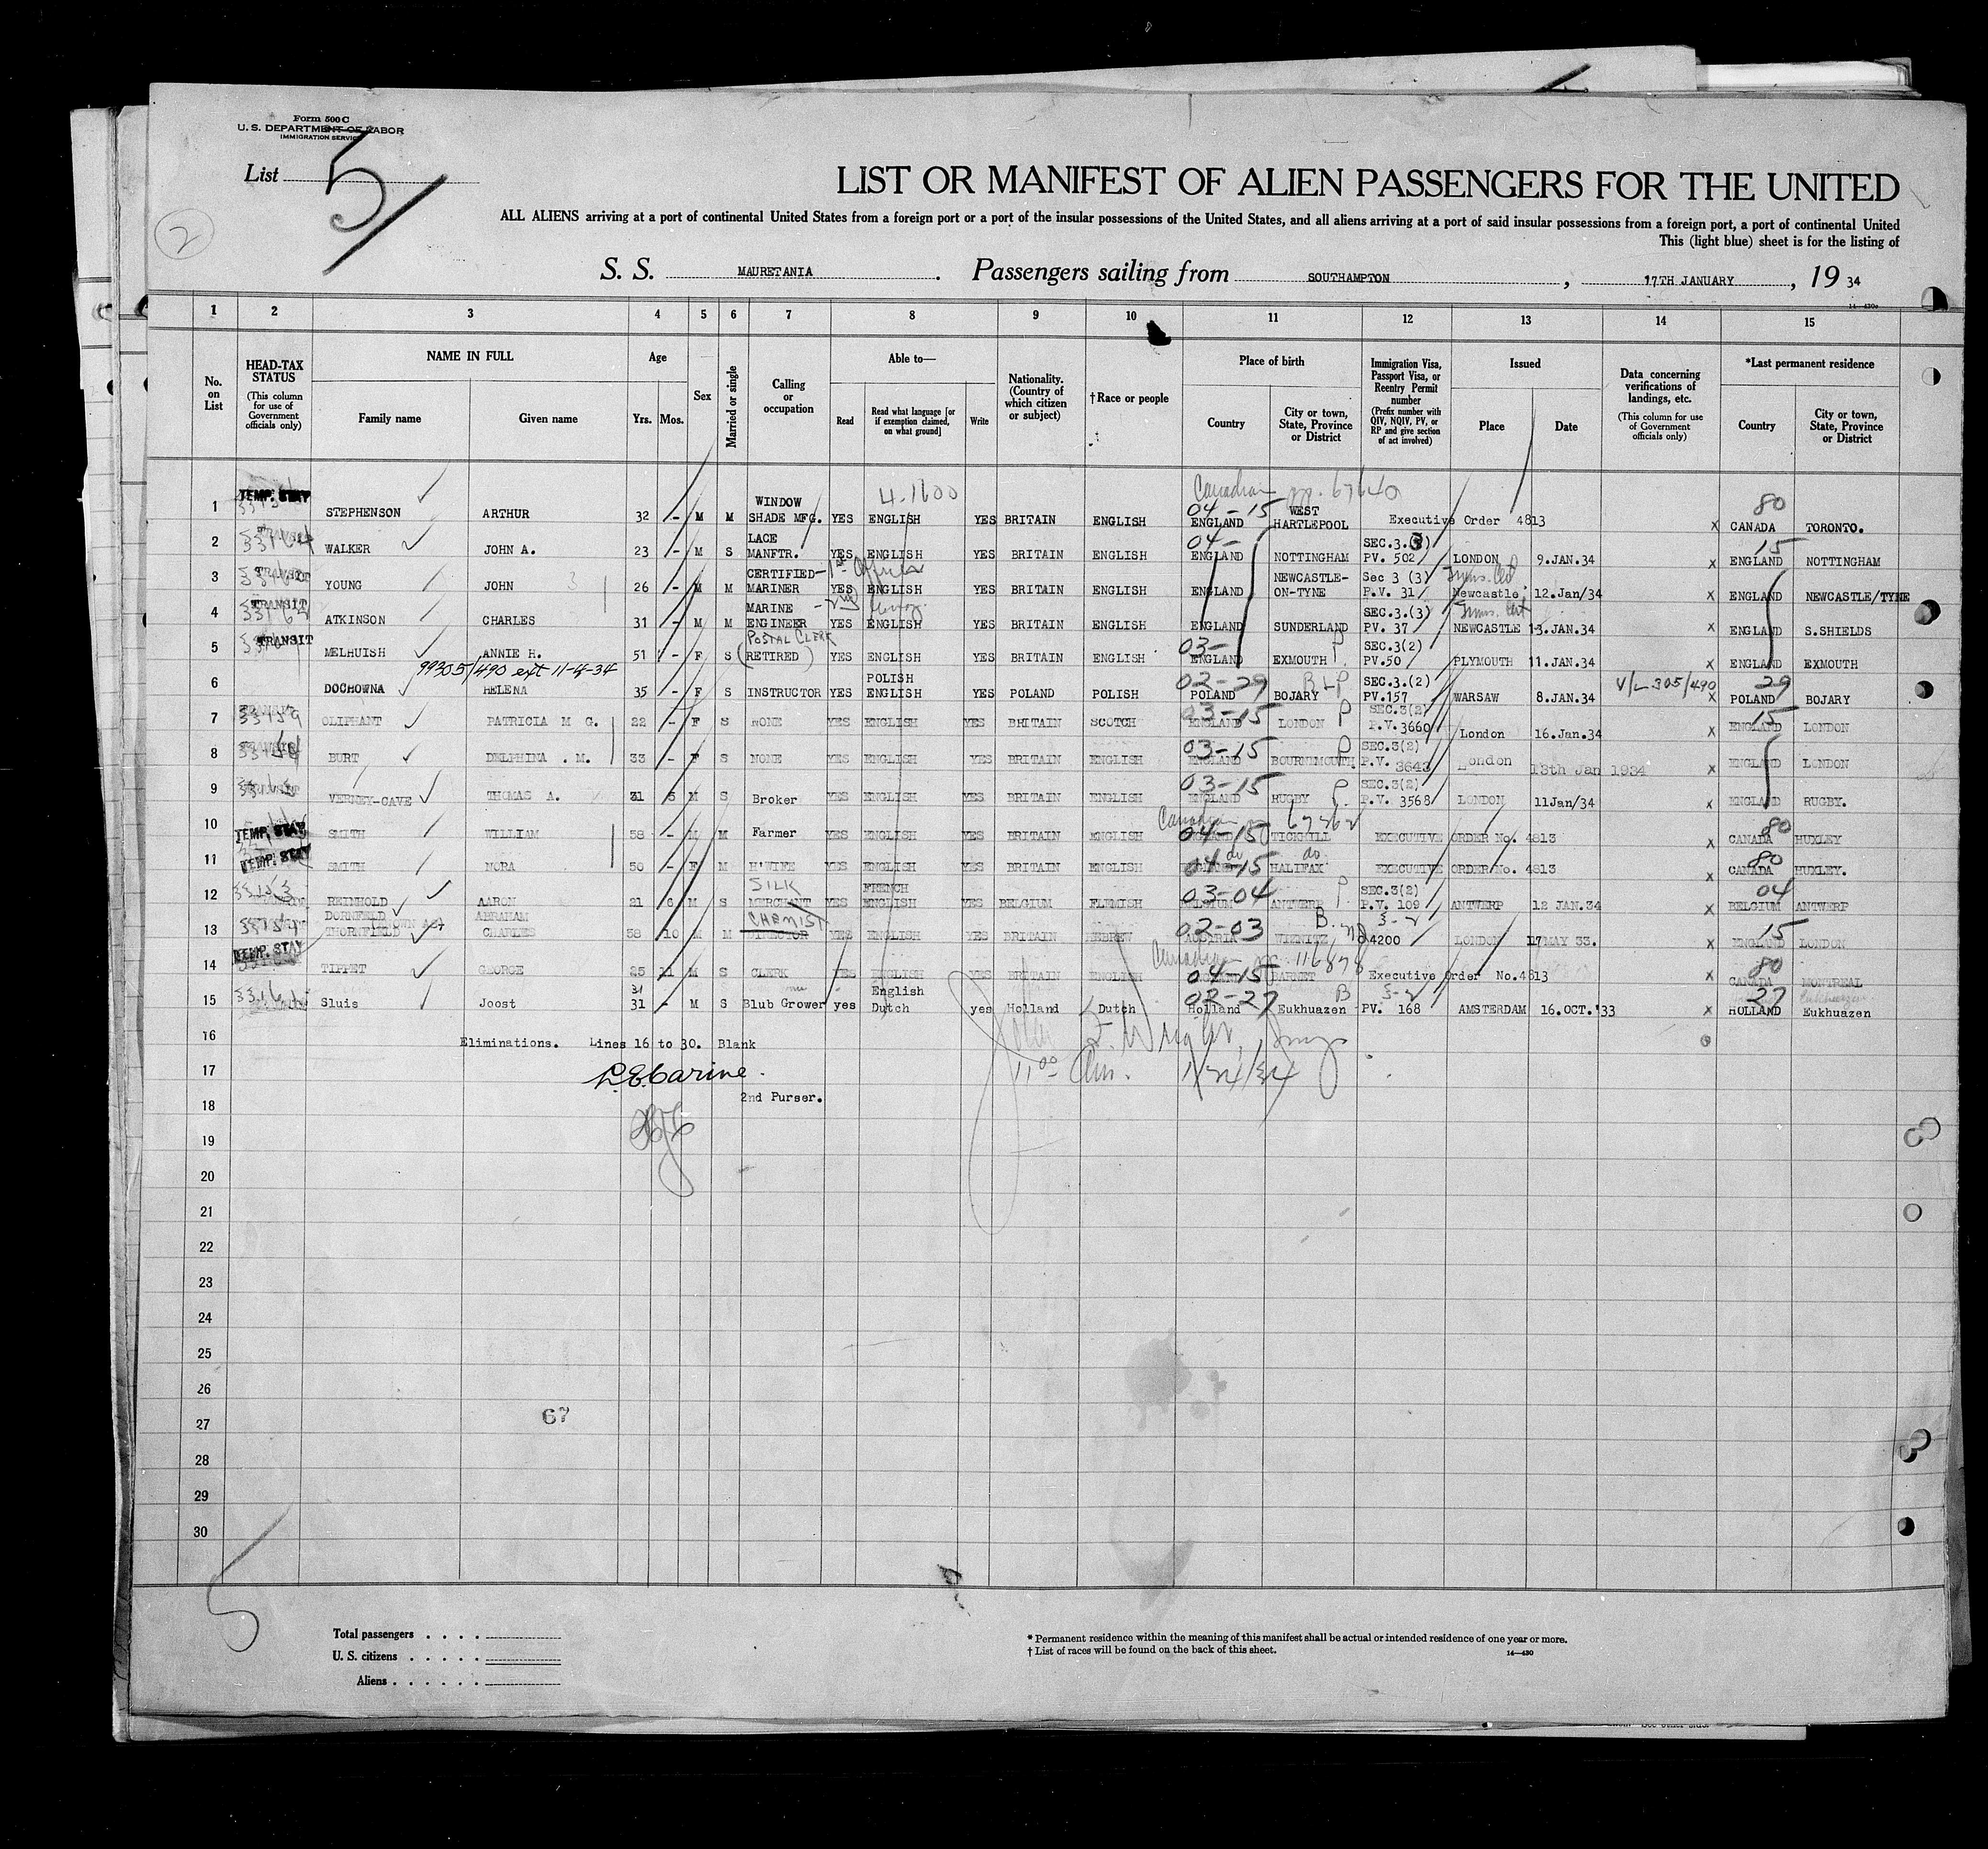 Form 500 C
U. S. DEPARTMENT OF LABOR
IMMIGRATION SERVICE
List 5
2
LIST OR MANIFEST OF ALIEN PASSENGERS FOR THE UNITED
ALL ALIENS arriving at a port of continental United States from a foreign port or a port of the insular possessions of the United States, and all aliens arriving at a port of said insular possessions from a foreign port, a port of continental United
This (light blue) sheet is for the listing of
S. S. MAURETANIA . Passengers sailing from SOUTHAMPTON , 17TH JANUARY , 19 34
1 2 3 4 5 6 7 8 9 10 11 12 13 14 15
No. on List
HEAD-TAX STATUS (This column for use of Government officials only)
NAME IN FULL
Family name Given name
Age
Yrs. Mos.
Sex
Married or single
Calling or occupation
Able to—
Read Read what language [or if exemption claimed, on what ground] Write
Nationality. (Country of which citizen or subject)
†Race or people
Place of birth
Country City or town, State, Province or District
Immigration Visa, Passport Visa, or Reentry Permit number (Prefix number with QIV, NQIV, PV, or RP and give section of act involved)
Issued
Place Date
Data concerning verifications of landings, etc. (This column for use of Government officials only)
*Last permanent residence
Country City or town, State, Province or District
1 TEMP. STAY STEPHENSON ARTHUR 32 - M M WINDOW SHADE MFG. YES ENGLISH YES BRITAIN ENGLISH 04-15 ENGLAND WEST HARTLEPOOL Executive Order 4813 x 80 CANADA TORONTO.
2 WALKER JOHN A. 23 - M S LACE MANFTR. YES ENGLISH YES BRITAIN ENGLISH 04- ENGLAND NOTTINGHAM SEC.3.(3) PV. 502 LONDON 9.JAN.34 x 15 ENGLAND NOTTINGHAM
3 YOUNG JOHN 26 - M M CERTIFIED MARINER YES ENGLISH YES BRITAIN ENGLISH ENGLAND NEWCASTLE-ON-TYNE Sec 3 (3) P.V. 31 Newcastle 12.Jan/34 x ENGLAND NEWCASTLE/TYNE
4 TRANSIT ATKINSON CHARLES 31 - M M MARINE ENGINEER YES ENGLISH YES BRITAIN ENGLISH ENGLAND SUNDERLAND SEC.3.(3) PV. 37 NEWCASTLE 13.JAN.34 x ENGLAND S.SHIELDS
5 TRANSIT MELHUISH ANNIE H. 51 - F S POSTAL CLERK (RETIRED) YES ENGLISH YES BRITAIN ENGLISH 03- ENGLAND EXMOUTH P SEC.3(2) PV.50 PLYMOUTH 11.JAN.34 x ENGLAND EXMOUTH
99305/490 ext 11-4-34
6 DOCHOWNA HELENA 35 - F S INSTRUCTOR YES POLISH ENGLISH YES POLAND POLISH 02-29 POLAND BOJARY SEC.3.(2) PV.157 WARSAW 8.JAN.34 V/L 305/490 x 29 POLAND BOJARY
7 OLIPHANT PATRICIA M G. 22 - F S NONE YES ENGLISH YES BRITAIN SCOTCH 03-15 ENGLAND LONDON P SEC.3(2) P.V.3660 London 16.Jan.34 x 15 ENGLAND LONDON
8 BURT DELPHINA . M. 33 - F S NONE YES ENGLISH YES BRITAIN ENGLISH 03-15 ENGLAND BOURNEMOUTH P SEC.3(2) P.V. 3643 London 13th Jan 1934 x ENGLAND LONDON
9 VERNEY-CAVE THOMAS A. 31 5 M S Broker YES ENGLISH YES BRITAIN ENGLISH 03-15 ENGLAND RUGBY P SEC.3(2) P.V. 3568 LONDON 11Jan/34 x ENGLAND RUGBY.
10 TEMP. STAY SMITH WILLIAM 58 - M M Farmer YES ENGLISH YES BRITAIN ENGLISH 04-15 TICKHILL EXECUTIVE ORDER No. 4813 x 80 CANADA HUXLEY
11 TEMP. STAY SMITH NORA 50 - F M H'WIFE YES ENGLISH YES BRITAIN ENGLISH 04-15 do HALIFAX do EXECUTIVE ORDER No. 4813 x 80 CANADA HUXLEY.
12 REINHOLD AARON 21 6 M S SILK MERCHANT YES FRENCH ENGLISH YES BELGIUM FLEMISH 03-04 BELGIUM ANTWERP P SEC.3(2) P.V. 109 ANTWERP 12 JAN.34 x 04 BELGIUM ANTWERP
13 DORNFELD ABRAHAM THORNFIELD CHARLES 38 10 M M CHEMIST DIRECTOR YES ENGLISH YES BRITAIN HEBREW 02-03 AUSTRIA B. 3-2 4200 LONDON 17 MAY 33. x 15 ENGLAND LONDON
14 TEMP. STAY TIPPET GEORGE 25 11 M S CLERK YES ENGLISH YES BRITAIN ENGLISH Canadian 116878 04-15 BARNET Executive Order No.4813 x 80 CANADA MONTREAL
15 Sluis Joost 31 - M S Blub Grower yes English Dutch yes Holland Dutch 02-27 Holland Eukhuazen B 3-2 PV. 168 AMSTERDAM 16.OCT.'33 x 27 HOLLAND Eukhuazen
16 Eliminations. Lines 16 to 30. Blank
17
2nd Purser.
18
19
20
21
22
23
24
25
26
27 67
28
29
30
Total passengers . . . .
U. S. citizens . . . . .
Aliens . . . . . .
* Permanent residence within the meaning of this manifest shall be actual or intended residence of one year or more.
† List of races will be found on the back of this sheet.
14—430